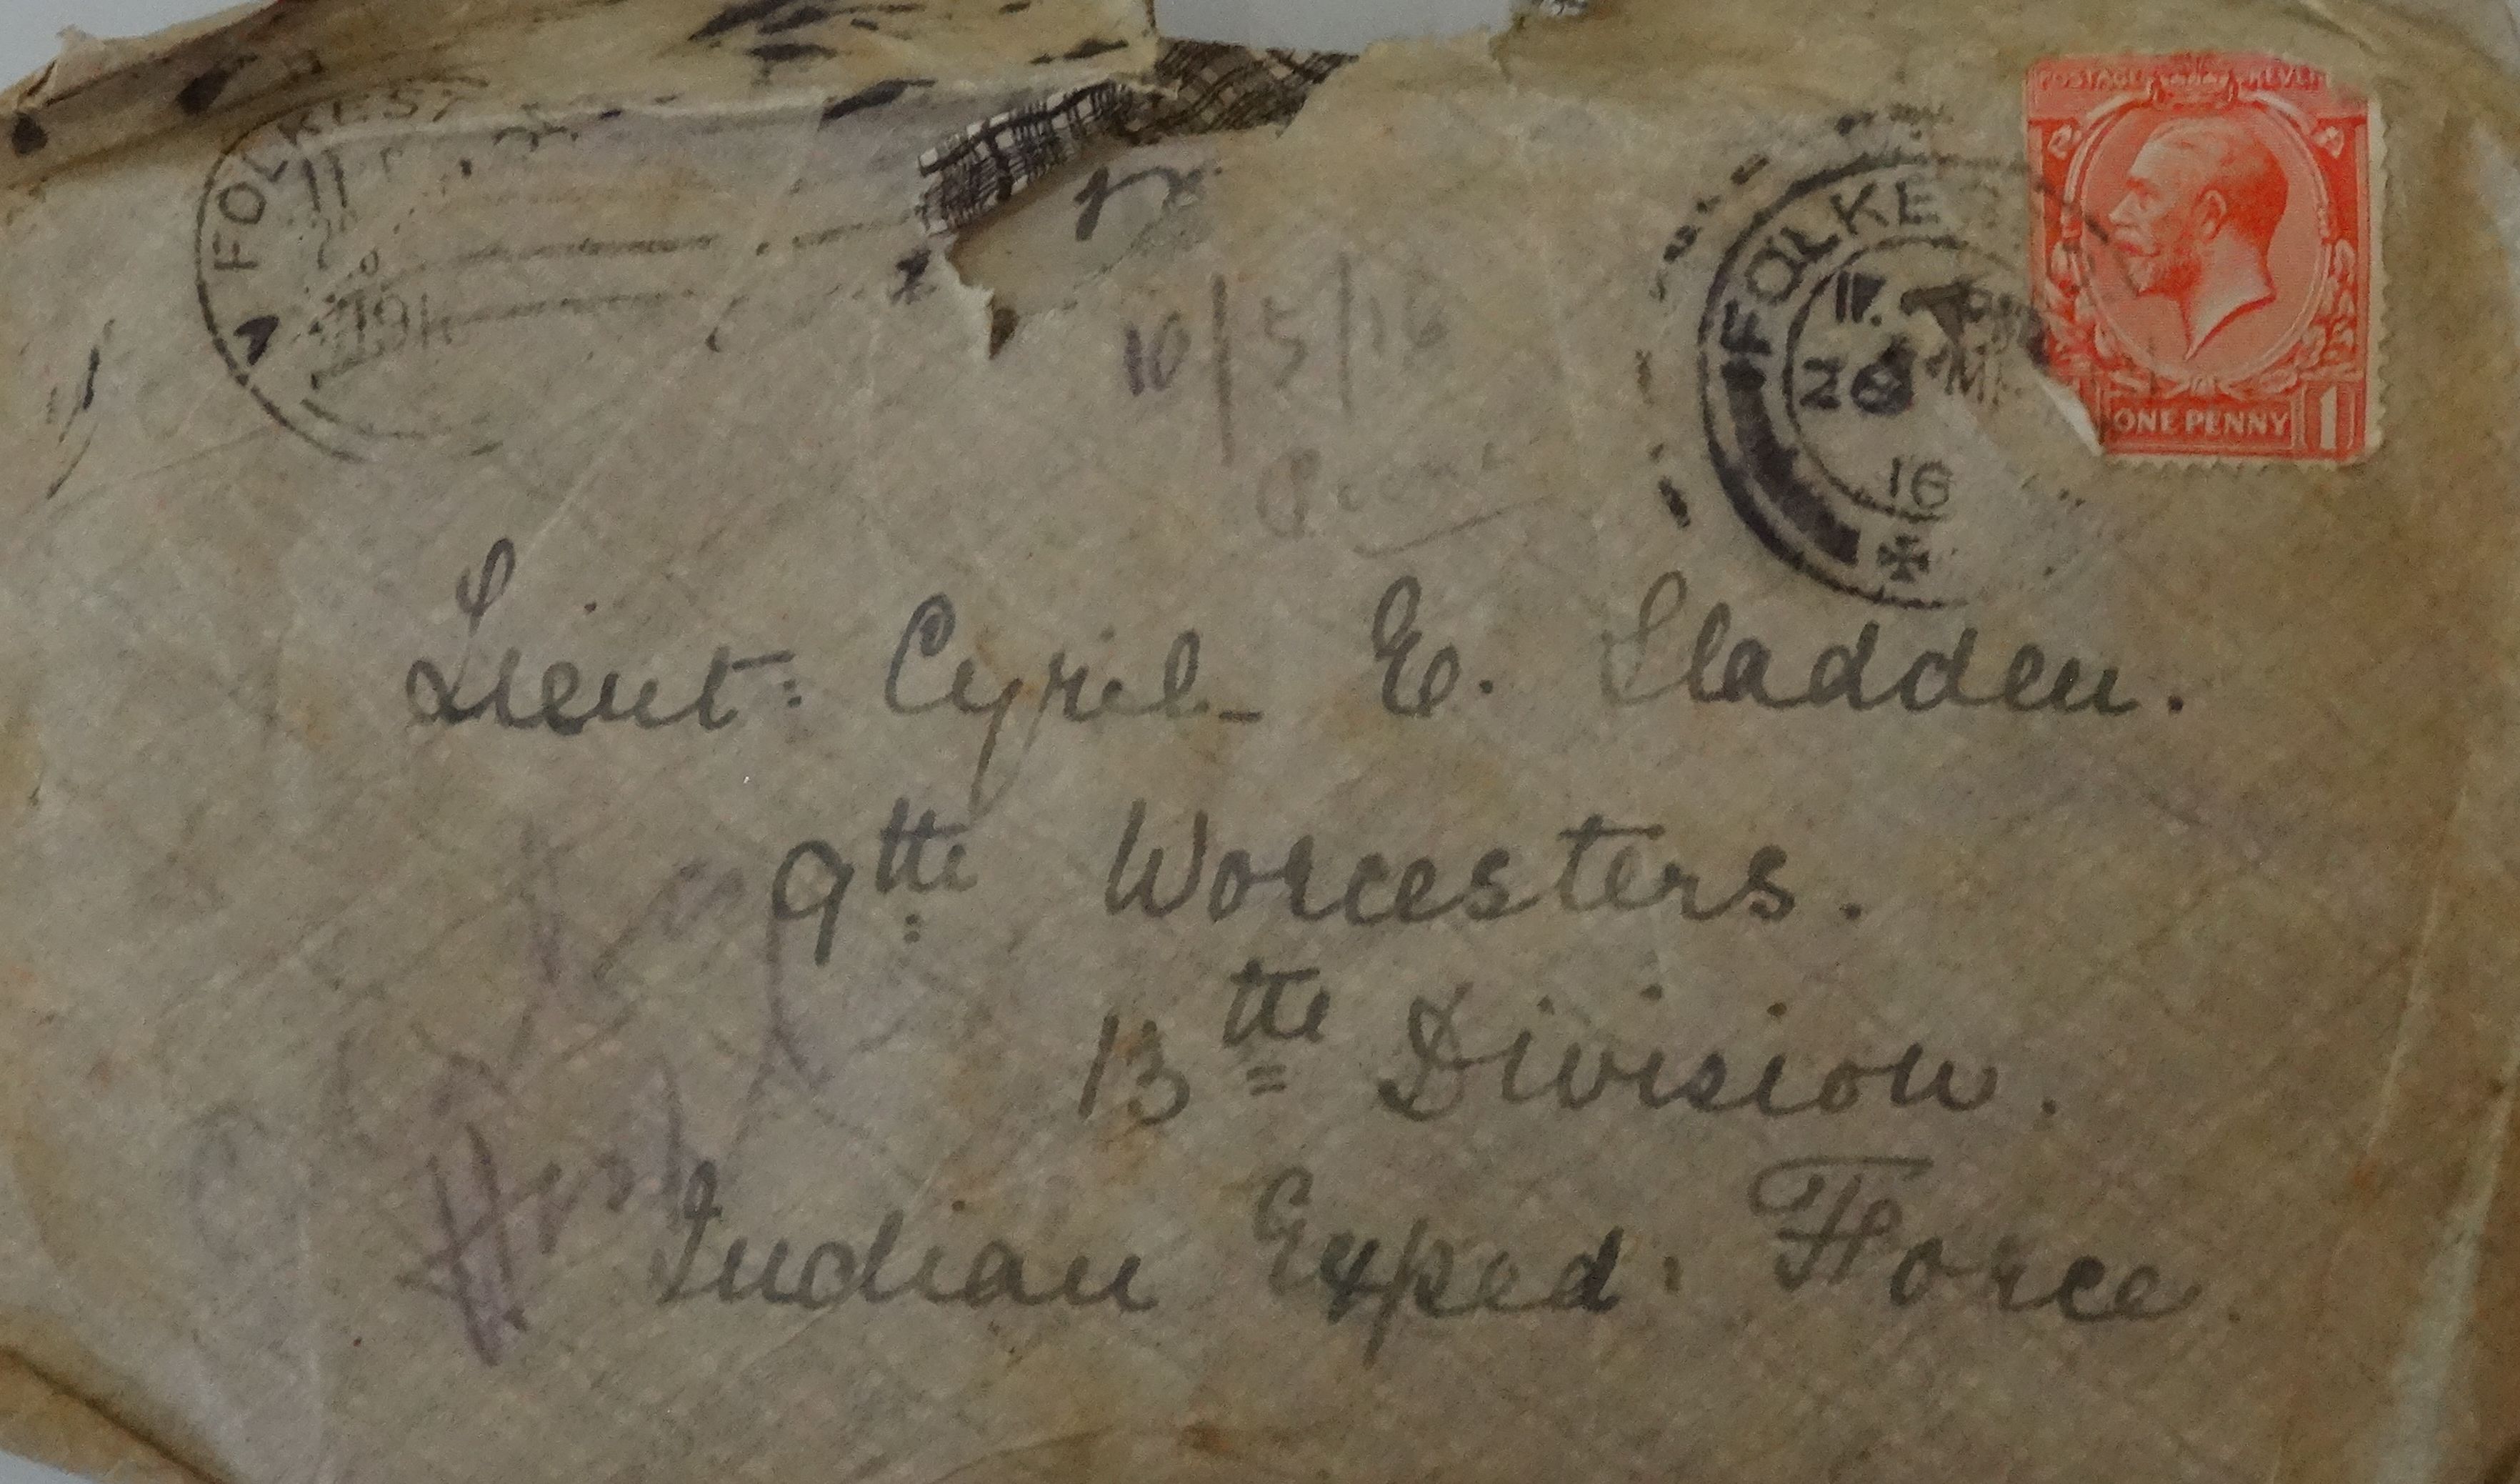 FOLKEST
11
191
FOLKE
26 M
16
POSTAGE REVE
ONE PENNY 1
10/5/16
Lieut: Cyril E. Sladden.
9th Worcesters.
13th Division.
Hosp
Indian Exped: Force